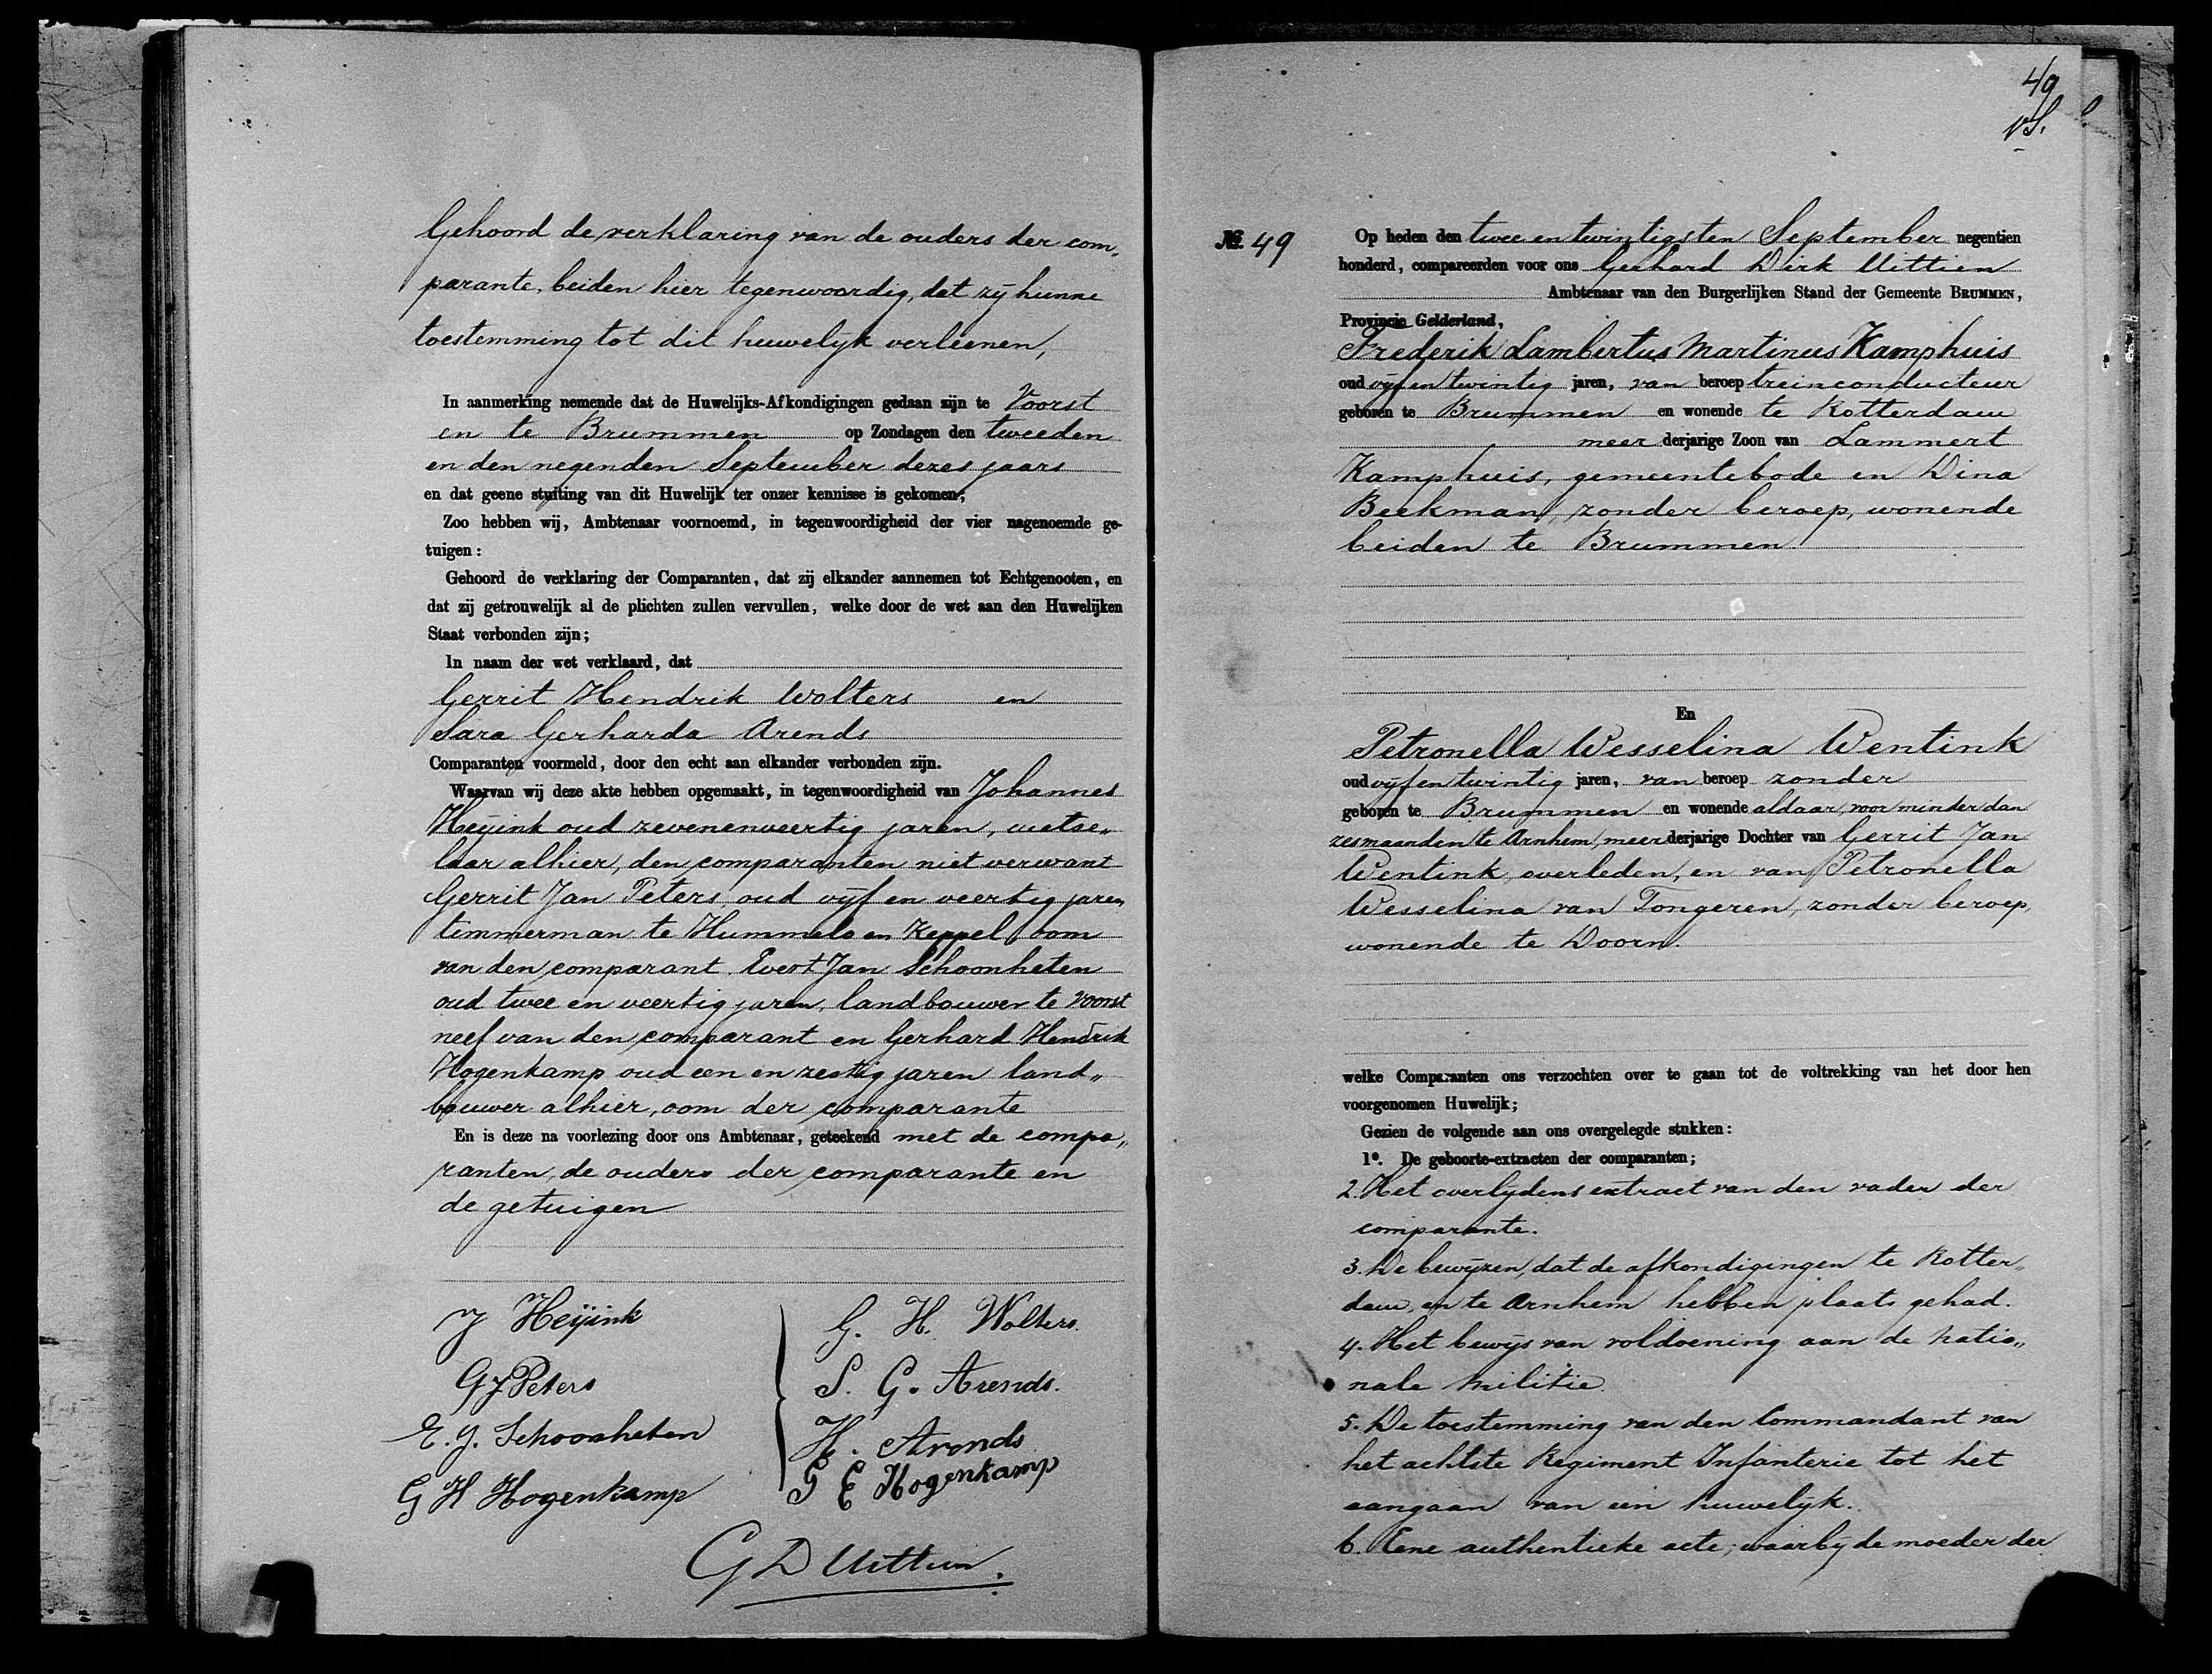 Gehoord de verklaring van de ouders der com„
parante, beiden hier tegenwoordig, dat zij hunne
toestemming tot dit huwelijk verleenen,
In aanmerking nemende dat de Huwelijks-Afkondigingen gedaan zijn te Voorst
en te Brummen op Zondagen den tweeden
en den negenden September dezes jaars
en dat geene stuiting van dit Huwelijk ter onzer kennisse is gekomen;
Zoo hebben wij, Ambtenaar voornoemd, in tegenwoordigheid der vier nagenoemde ge-
tuigen:
Gehoord de verklaring der Comparanten, dat zij elkander aannemen tot Echtgenooten, en
dat zij getrouwelijk al de plichten zullen vervullen, welke door de wet aan den Huwelijken
Staat verbonden zijn;
In naam der wet verklaard, dat
Gerrit Hendrik Wolters en
Sara Gerharda Arends
Comparanten voormeld, door den echt aan elkander verbonden zijn.
Waarvan wij deze akte hebben opgemaakt, in tegenwoordigheid van Johannes
Heijink oud zevenenveertig jaren, metse„
laar alhier, den comparanten niet verwant
Gerrit Jan Peters, oud vijf en veertig jaren
timmerman te Hummelo en Keppel, oom
van den comparant. Evert Jan Schoonheten
oud twee en veertig jaren, landbouwer te Voorst
neef van den comparant en Gerhard Hendrik
Hogenkamp oud een en zestig jaren land„
bouwer alhier, oom der comparante
En is deze na voorlezing door ons Ambtenaar, geteekend met de compa„
ranten, de ouders der comparante en
de getuigen
J Heijink
G J Peters
E. J. Schoonheten
G H Hogenkamp
G. H. Wolters.
S. G. Arends.
H. Arends
G E Hogenkamp
G D Uittien.
49
No. 49
Op heden den twee en twintigsten September negentien
honderd, compareerden voor ons Gerhard Dirk Uittien
Ambtenaar van den Burgerlijken Stand der Gemeente BRUMMEN,
Provincie Gelderland,
Frederik Lambertus Martinus Kamphuis
oud vijf en twintig jaren, van beroep treinconducteur
geboren te Brummen en wonende te Rotterdam
meer derjarige Zoon van Lammert
Kamphuis, gemeentebode en Dina
Beekman, zonder beroep, wonende
beiden te Brummen.
En
Petronella Wesselina Wentink
oud vijf en twintig jaren, van beroep zonder
geboren te Brummen en wonende aldaar, voor minder dan
zes maanden te Arnhem, meer derjarige Dochter van Gerrit Jan
Wentink, overleden, en van Petronella
Wesselina van Tongeren, zonder beroep,
wonende te Doorn.
welke Comparanten ons verzochten over te gaan tot de voltrekking van het door hen
voorgenomen Huwelijk;
Gezien de volgende aan ons overgelegde stukken:
1o. De geboorte-extracten der comparanten;
2. Het overlijdens extract van den vader der
comparante.
3. De bewijzen, dat de afkondigingen te Rotter„
dam, en te Arnhem hebben plaats gehad.
4. Het bewijs van voldoening aan de natio„
nale militie.
5. De toestemming van den Commandant van
het achtste Regiment Infanterie tot het
aangaan van een huwelijk.
6. Eene authentieke acte, waarbij de moeder der